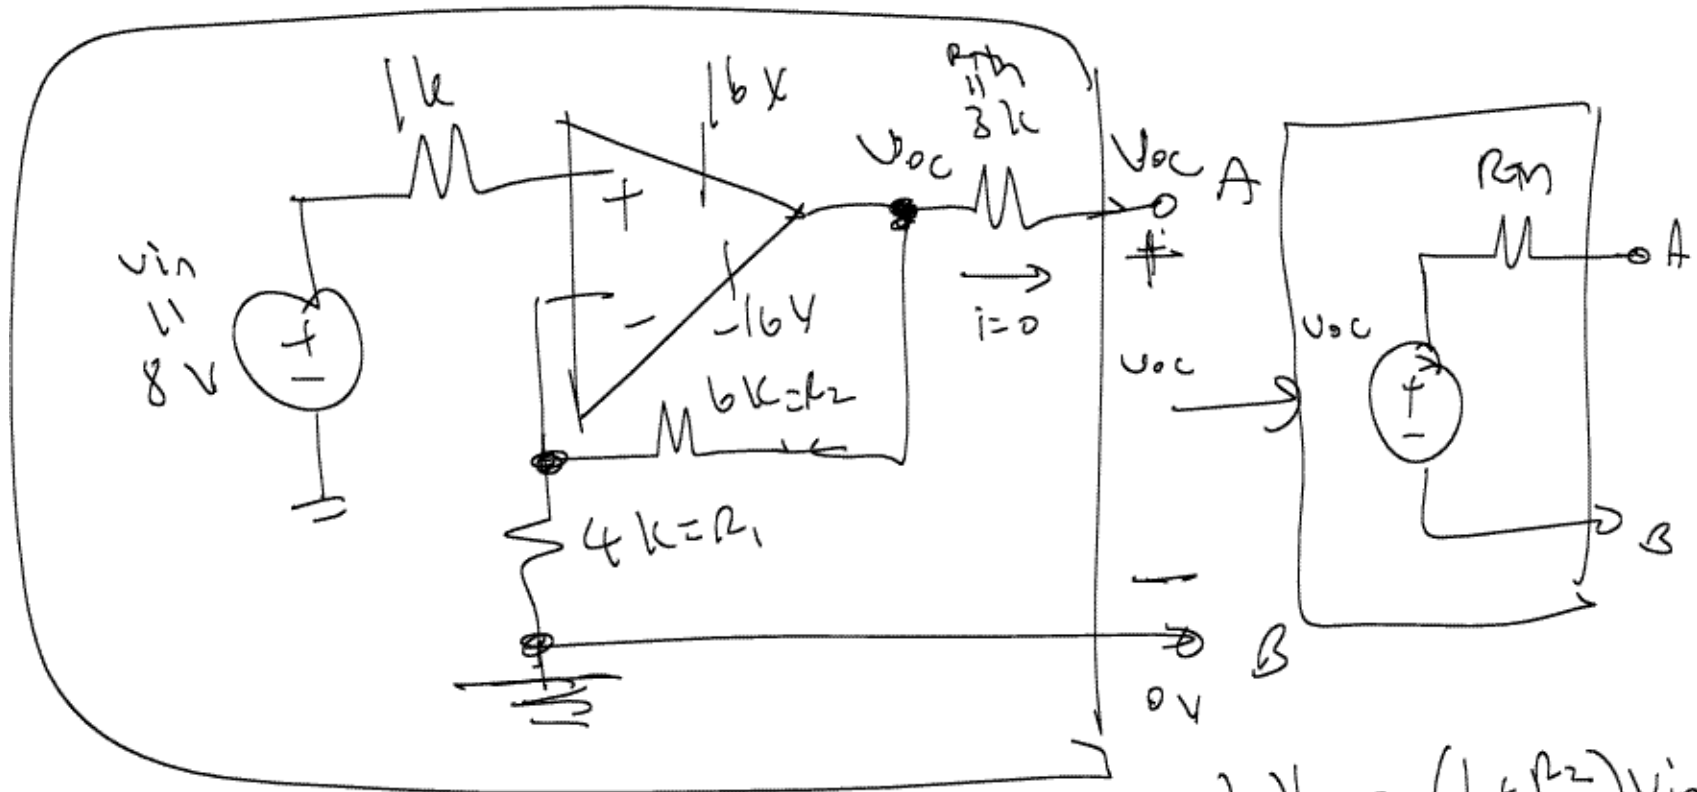 1k
16V
RTh
11
3k
Voc
Voc A
+
-
i=0
Vin
11
8V
+
-
+
-
-16V
6k=R2
4k=R1
-
B
0V
Voc
RTh
A
Voc
+
-
B
(1+R2)Vin